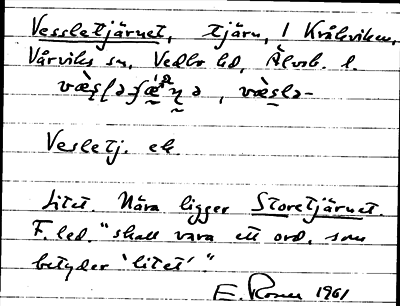 Vessletjärnet, tjärn, i Kråkviken,
Vårviks sn, Vedbo hd, Älvsb. l.
Vesletj. ek.
Litet. Nära ligger Storetjärnet.
F. led. "skall vara ett ord, som
betyder 'litet'."
E. 1961